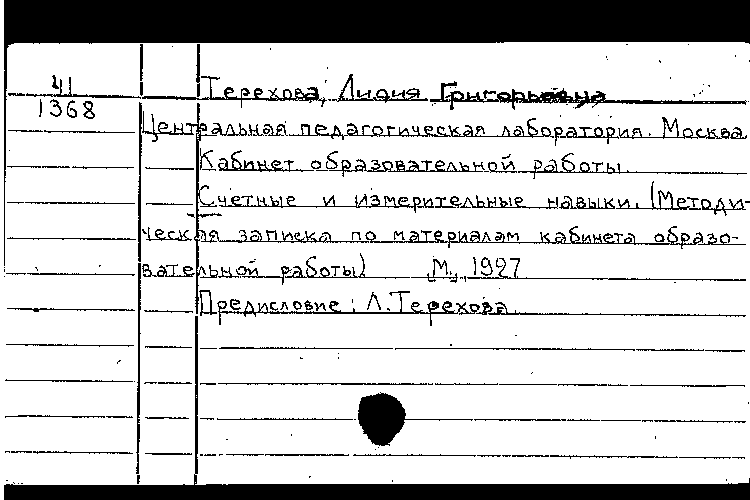 41
1368
Терехова, Лидия Григорьевна
Центральная педагогическая лаборатория. Москва.
Кабинет образовательной работы.
Счетные и измерительные навыки. (Методи-
ческая записка по материалам кабинета образо-
вательной работы) М., 1927
Предисловие: Л. Терехова.